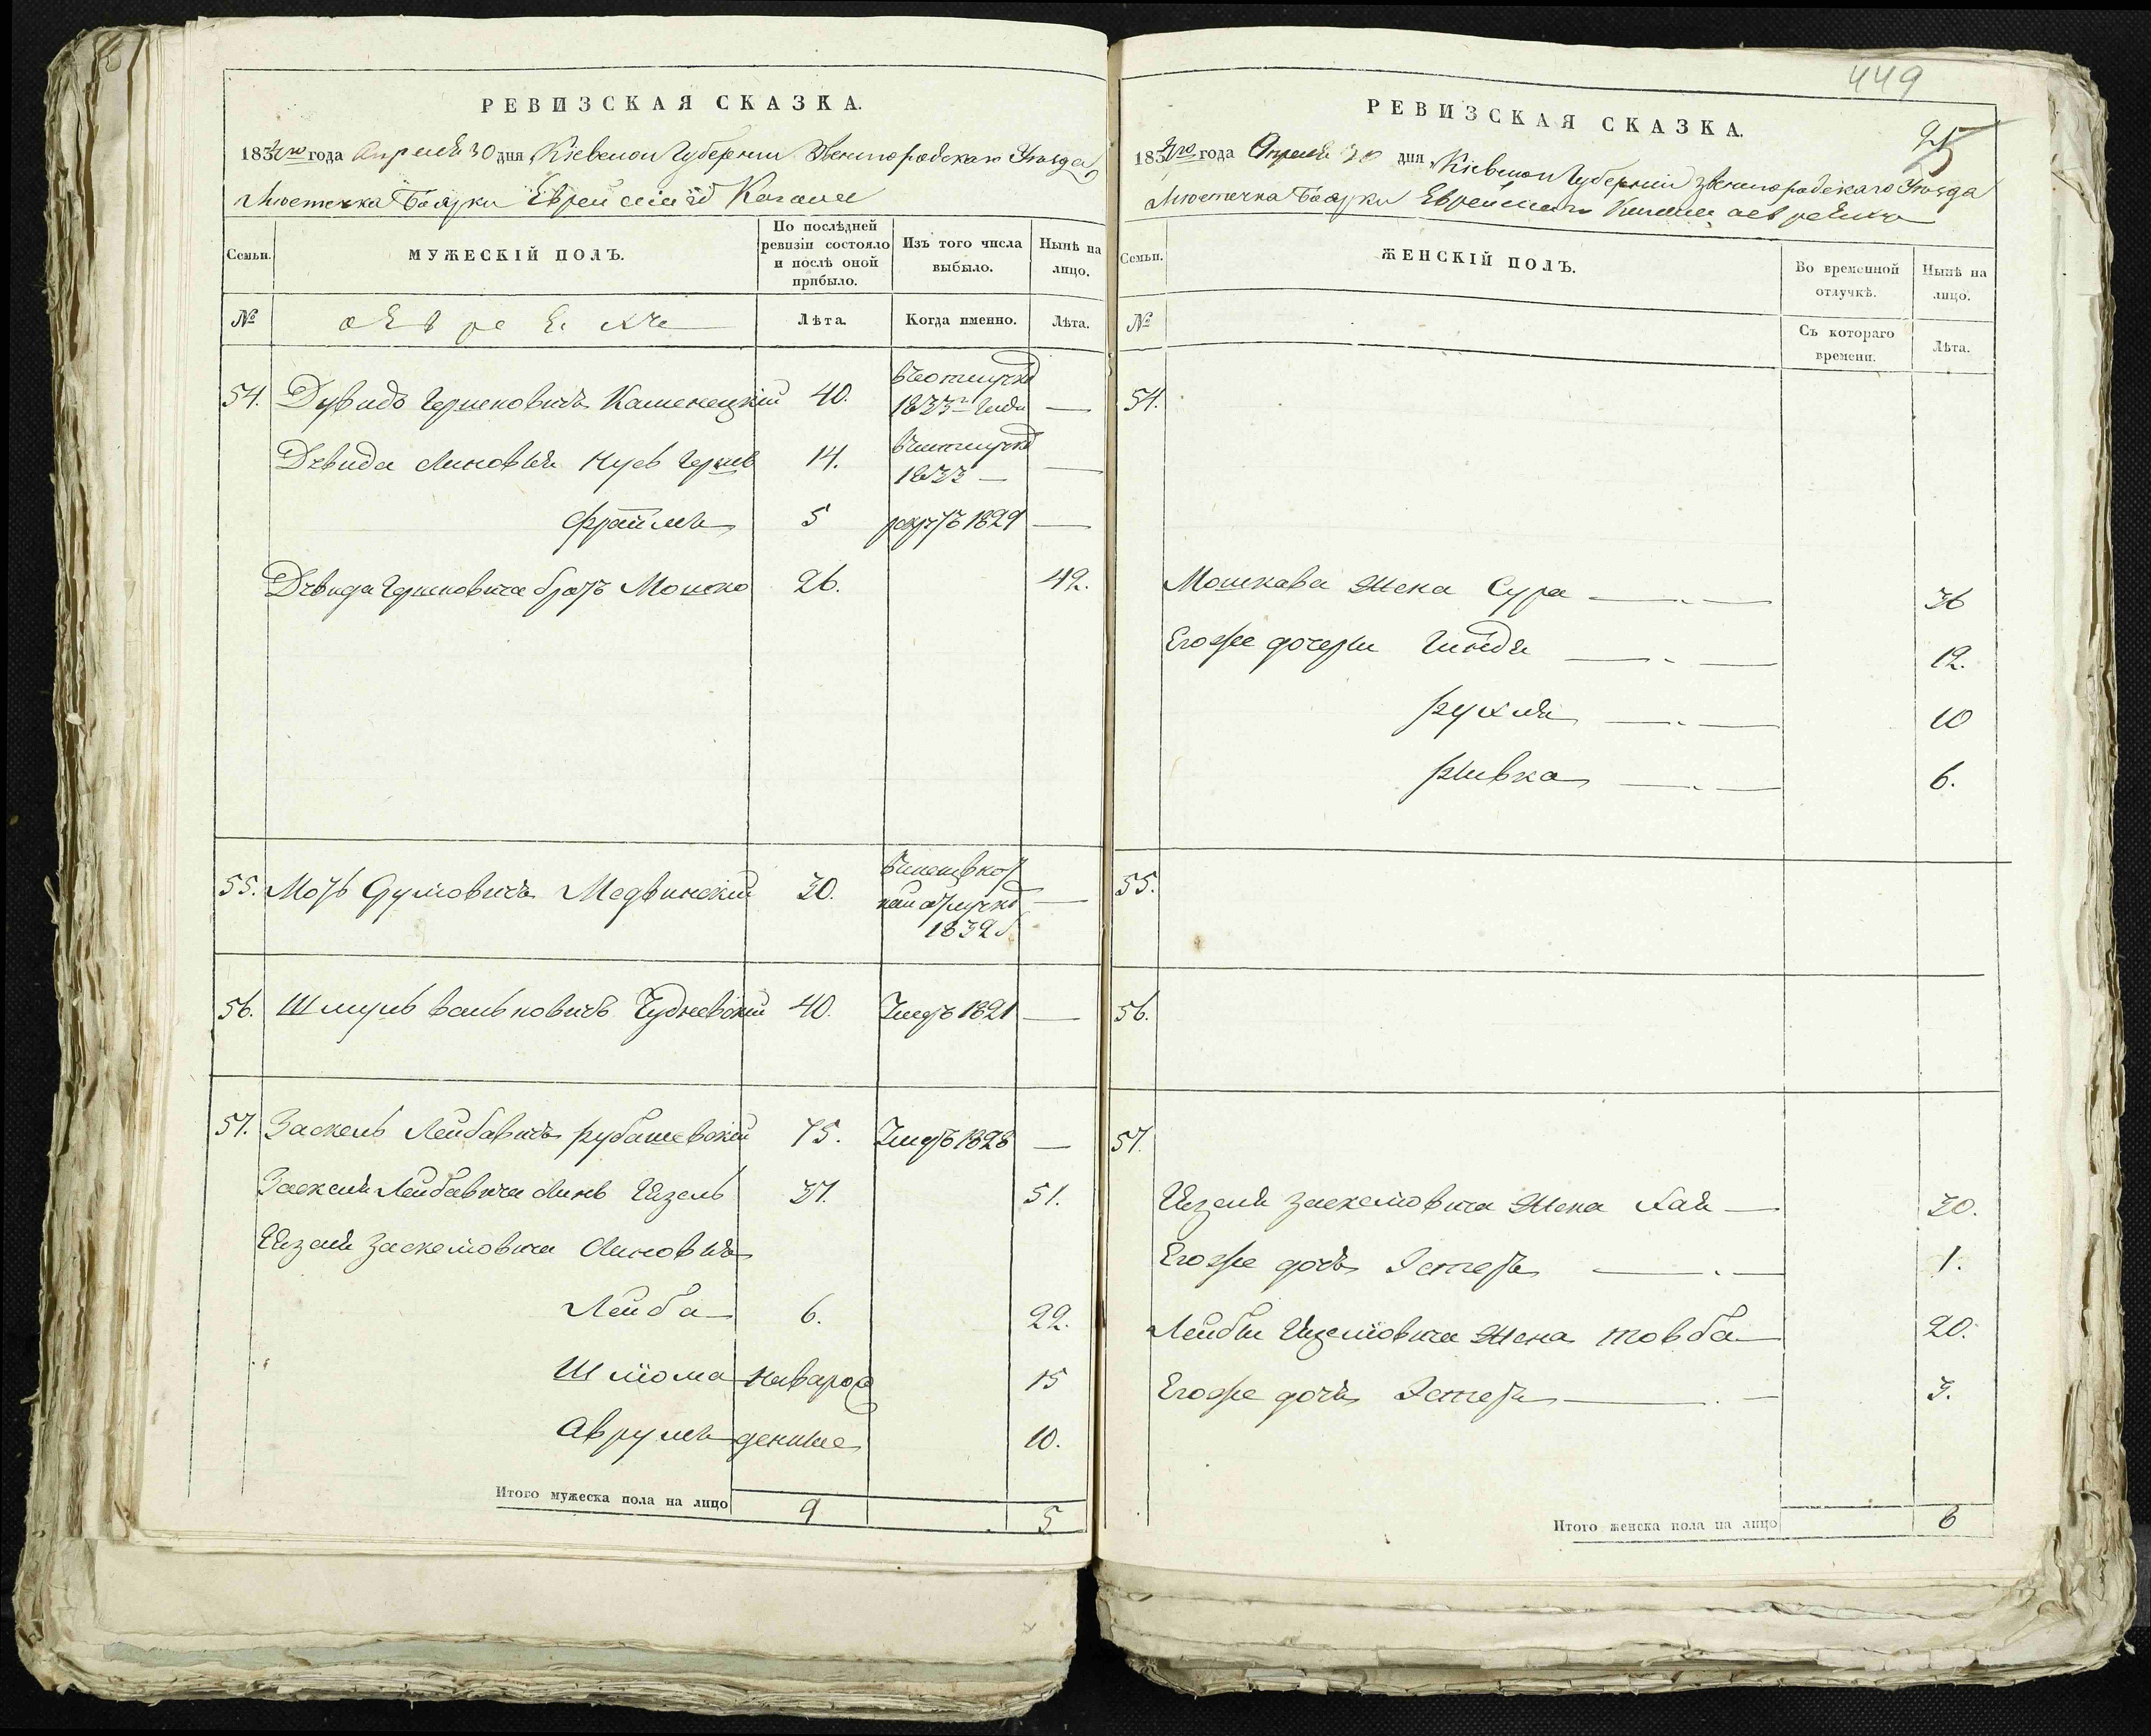 РЕВИЗСКАЯ СКАЗКА.
1834го года Апреля 30 дня Кіевской Губерніи Звенигородскаго Уезда
Местечка Боярки Еврейскаго Кагала
Семьи.
МУЖЕСКІЙ ПОЛЪ.
По послѣдней ревизіи состояло и послѣ оной прибыло.
Изъ того числа выбыло.
Нынѣ на лицо.
№
о Евреяхъ
Лѣта.
Когда именно.
Лѣта.
54. Дувидъ Гершковичъ Каменецкій 40. 1833 Года —
Дувида Сыновья 14. 1833 —
Фроимъ 5 1829 —
Дувида Гершковича братъ Мошко 26. 42.
55. Дувидовичъ Медвинскій 30. 1832
56. Шмуль Вольковичъ Чудневскій 40. Умеръ 1821 —
57. Заскель Лейбовичъ Рубашевскій 75. Умеръ 1828 —
Заскеля Лейбовича Сынъ Ицель 37. 51.
Ицеля Заскелiовича Сыновья
Лейба 6. 22.
Шліома новорож 15
Аврумъ денные 10.
Итого мужеска пола на лицо 9 5
449
РЕВИЗСКАЯ СКАЗКА.
25
1834го года Апреля 30 дня Кіевской Губерніи Звенигородскаго Уезда
Местечка Боярки Еврейскаго Кагала о Евреяхъ
Семьи.
ЖЕНСКІЙ ПОЛЪ.
Во временной отлучкѣ.
Нынѣ на лицо.
№
Съ котораго времени.
Лѣта.
54.
Мошкова Жена Сура — 36
Егоже дочери Гиндя — 12.
Рухля — 10
Ривка — 6.
55.
56.
57.
Ицеля Заскелiовича Жена Хая — 30.
Егоже дочь Эстеръ — 1.
Лейбы Ицелiовича Жена Товба 20.
Егоже дочь Эстеръ — 3.
Итого женска пола на лицо 8